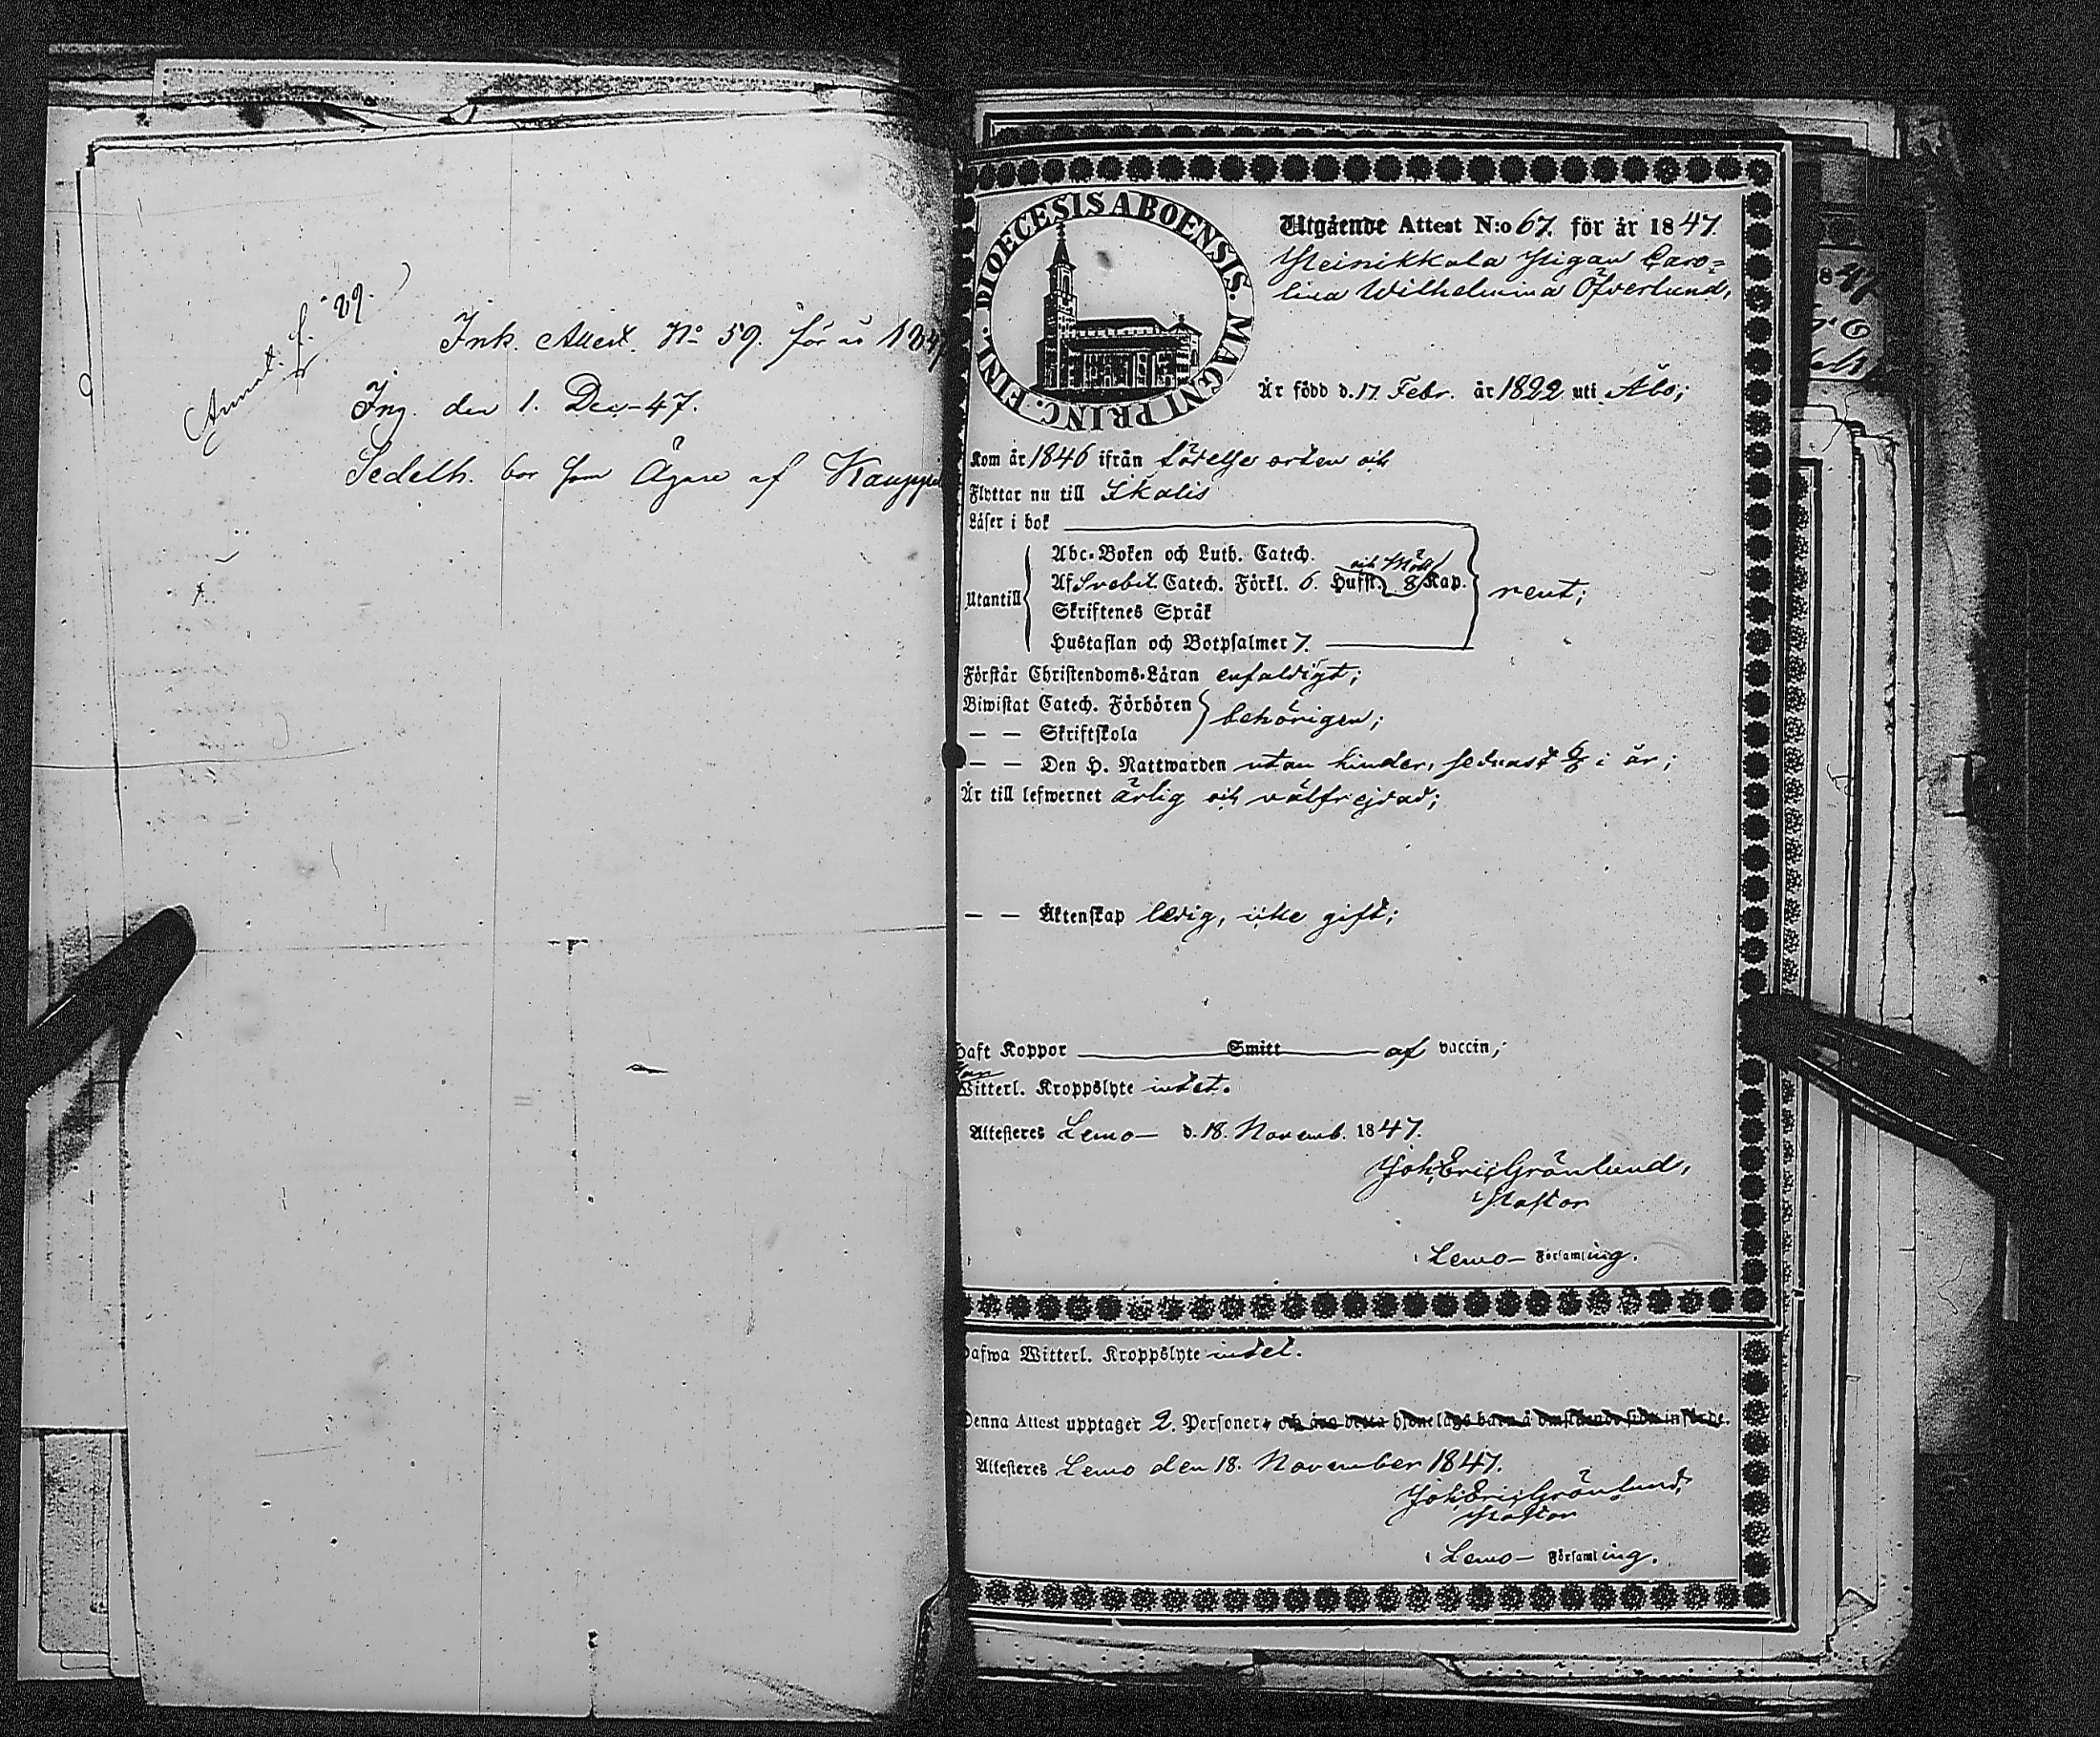 Annot. f. 89.
Ink. Attest. No 59. för år 184
Ing. den 1. Dec. 47.
Sedelh. bor som Ägare af Kauppi
DIOECESIS ABOENSIS. MAGNI PRINC. FINL.
Utgående Attest N:o 67. för år 1847
Heinikkala Pigan Caro=
lina Wilhelmina Öfverlund,
Är född d. 17 Febr. år 1822 uti Åbo;
Kom år 1846 ifrån födelse orten och
Flyttar nu till Ikalis
Läser i bok
Abc-Boken och Luth. Catech.
Af Svebil. Catech. Förkl. 6. Hufst. 8 Kap.
Utantill
rent;
Skriftenes Språk
Hustaflan och Botpsalmer 7.
Förstår Christendoms-Läran enfaldigt;
Biwistat Catech. Förhören
behörigen;
— — Skriftskola
— — Den H. Nattwarden utan hinder, sednast i år;
Är till lefwernet ärlig och välfrejdad;
— — Äktenskap ledig, icke gift;
Haft Koppor Smitt af vaccin;
Har
Witterl. Kroppslyte intet.
Attesteres Lemo d. 18. Novemb. 1847.
Joh. Eric Grönlund,
Pastor
i Lemo Församling.
Hafwa Witterl. Kroppslyte intet.
Denna Attest upptager 2. Personer, och äro detta hjonelags barn å omstående sida införde.
Attesteres Lemo den 18. November 1847.
Joh. Eric Grönlund,
Pastor
i Lemo Församling.